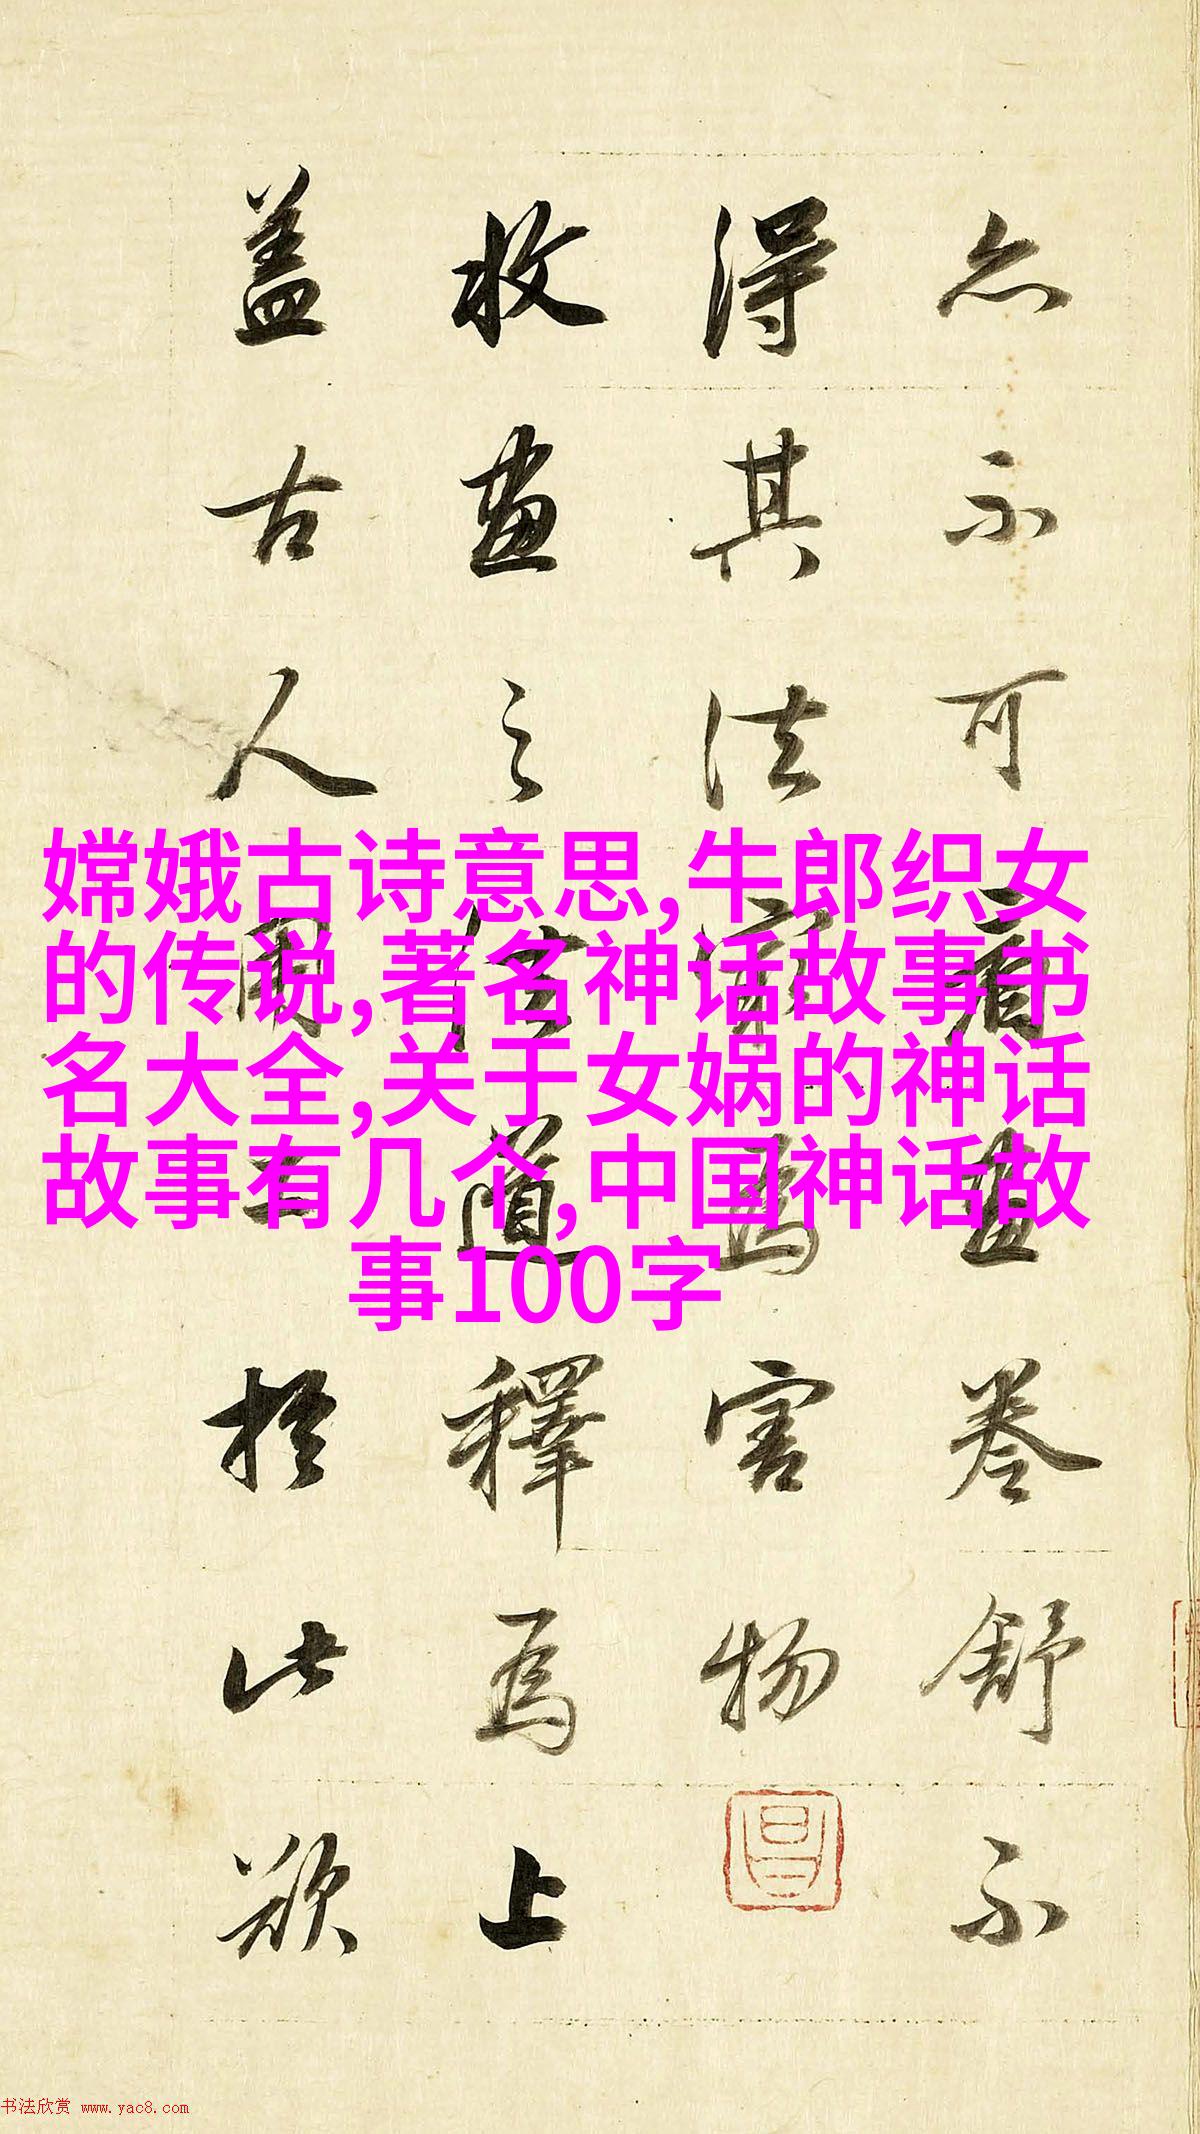 亦不可看畫卷舒不
得其法實為害物
收畫之法道釋為上
蓋古人用工於此欲
嫦娥古诗意思,牛郎织女
的传说,著名神话故事书
名大全,关于女娲的神话
故事有几个,中国神话故
事100字
书法欣赏 www.yac8.com